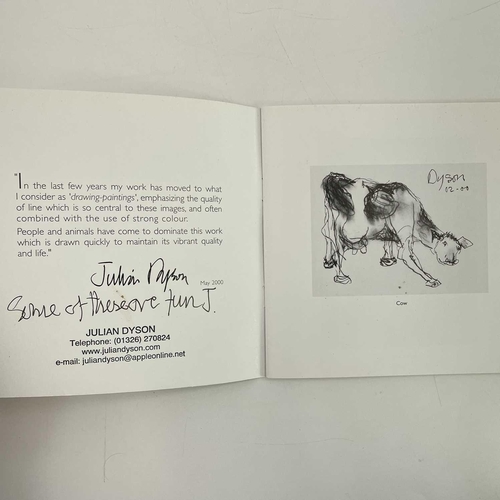 "In the last few years my work has moved to what
I consider as 'drawing-paintings', emphasizing the quality
of line which is so central to these images, and often
combined with the use of strong colour.
People and animals have come to dominate this work
which is drawn quickly to maintain its vibrant quality
and life."
Julian Dyson
May 2000
Some of these are fun J.
JULIAN DYSON
Telephone: (01326) 270824
www.juliandyson.com
e-mail: juliandyson@appleonline.net
Dyson
Cow